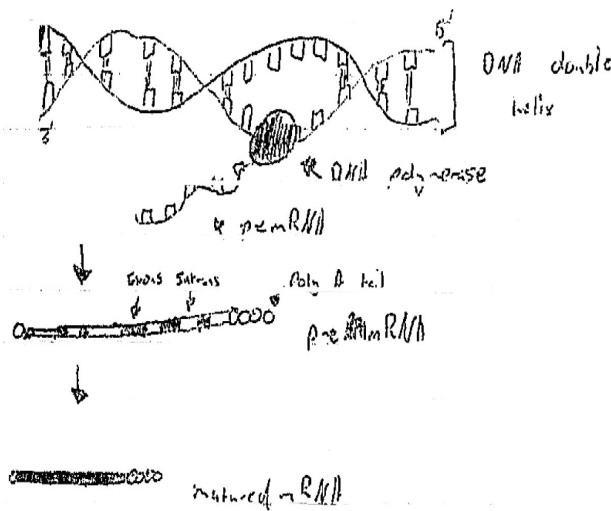 5'
DNA double
helix
3'
DNA polymerase
pre mRNA
Exons Introns
Poly A tail
pre mRNA
matured mRNA